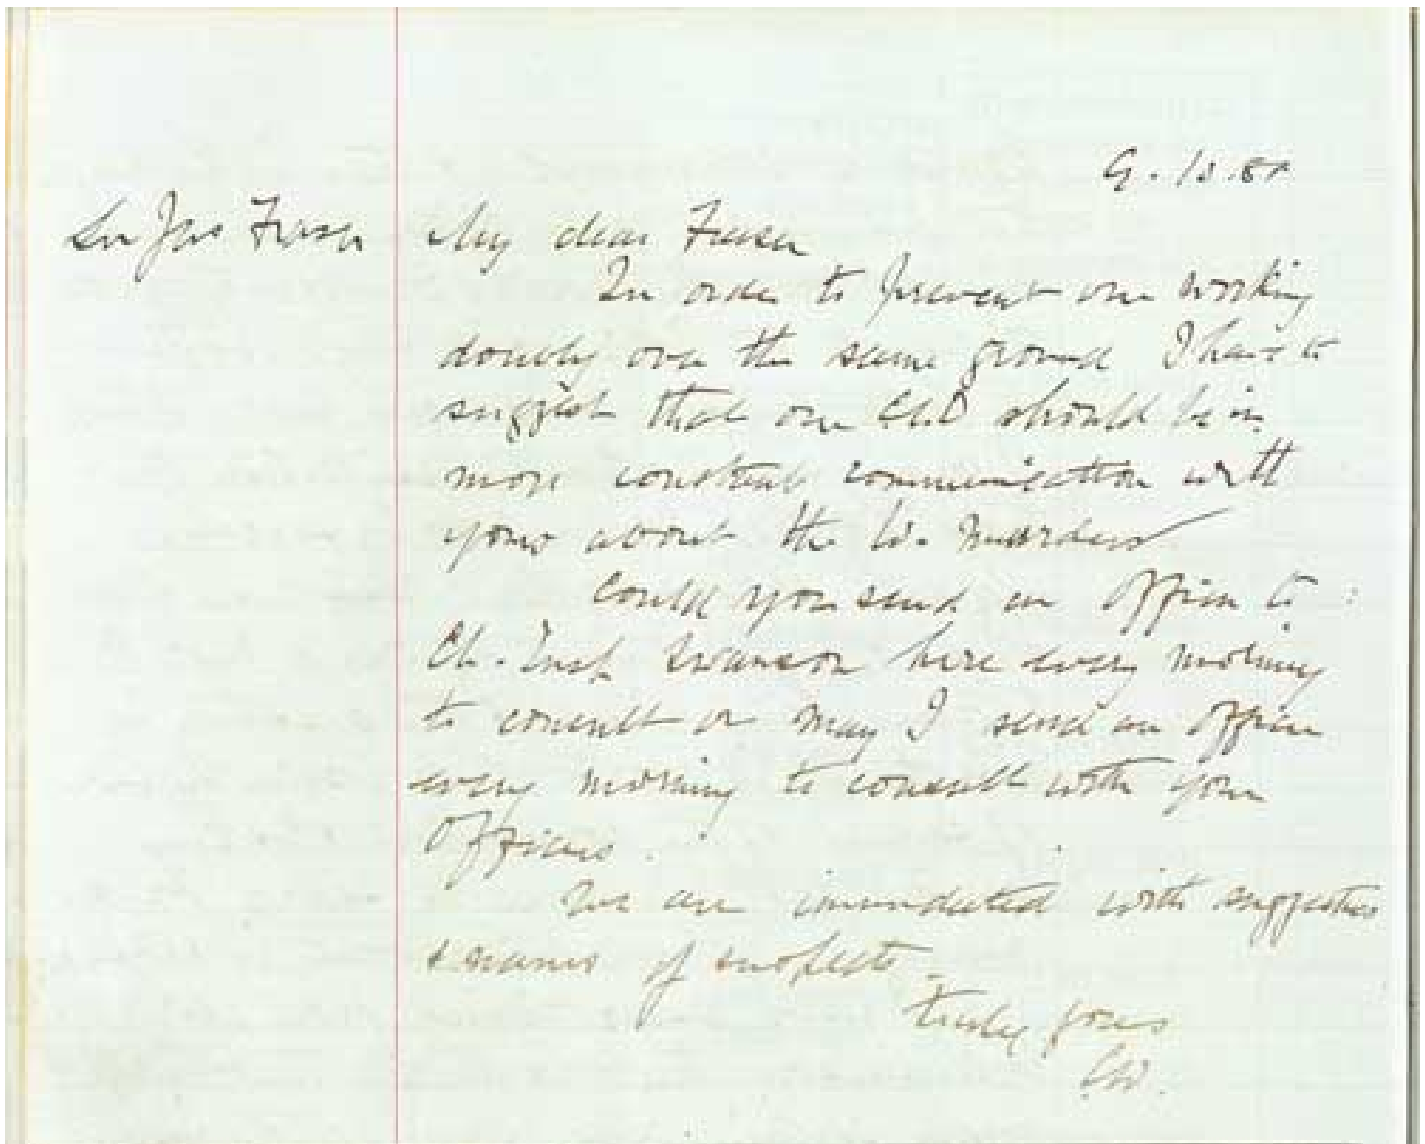 9.10.88
Sir Jas Fraser
My dear Fraser
In order to prevent our working
doubly over the same ground I have to
suggest that our CID should be in
more constant communication with
yours about the W. Murders
Could you send an Officer to
Ch. Insp Swanson here every morning
to consult or may I send an Officer
every morning to consult with your
Officers.
We are inundated with suggestions
& names of suspects.
truly yours
CW.